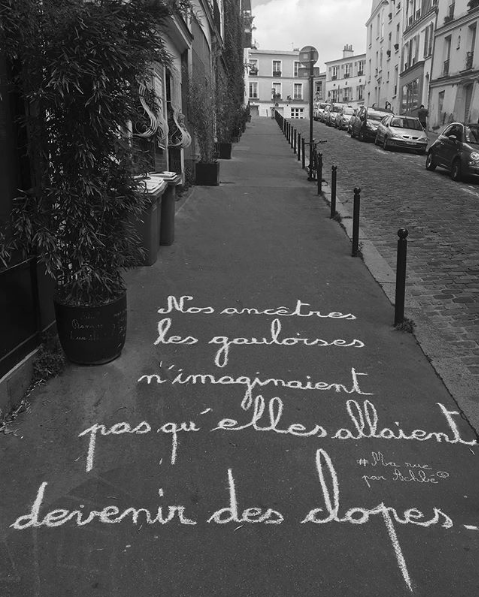 Nos ancêtres
les gauloises
n'imaginaient
pas qu'elles allaient
#Ma rue
par Achbé
devenir des clopes.